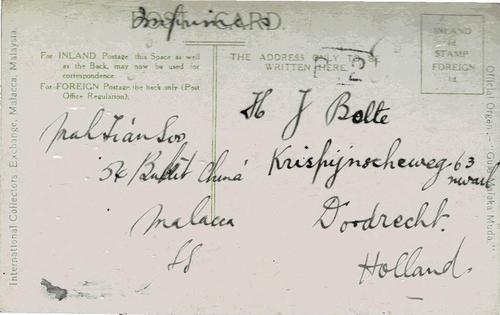 POST CARD.
For INLAND Postage this Space as well
as the Back, may now be used for
correspondence.
For FOREIGN Postage the back only (Post
Office Regulation).
THE ADDRESS ONLY
WRITTEN HERE.
INLAND
½d.
STAMP
FOREIGN
1d.
International Collectors Exchange, Malacca, Malaysia.
Official Organ:-
Wah Tian Soo
Bukit China
Malacca
SS
H J Bolte
63
Doodrecht.
Holland.